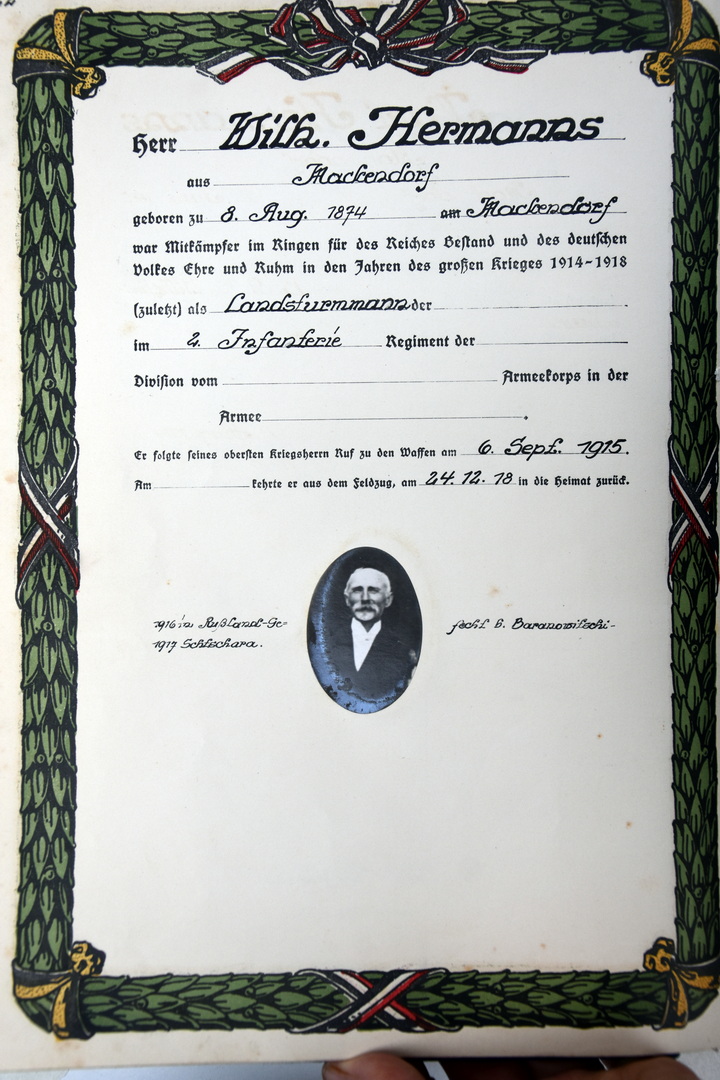 Herr Wilh. Hermanns
aus Mackendorf
geboren zu 8. Aug. 1874 am Mackendorf
war Mitkämpfer im Ringen für des Reiches Bestand und des deutschen
Volkes Ehre und Ruhm in den Jahren des großen Krieges 1914-1918
(zuletzt) als Landsturmmann der
im 2. Infanterie Regiment der
Division vom Armeekorps in der
Armee .
Er folgte seines obersten Kriegsherrn Ruf zu den Waffen am 6. Sept. 1915.
Am kehrte er aus dem Feldzug, am 24. 12. 18 in die Heimat zurück.
1916 in Rußland-Ge- fecht b. Baranowitschi-
1917 Schtschara.